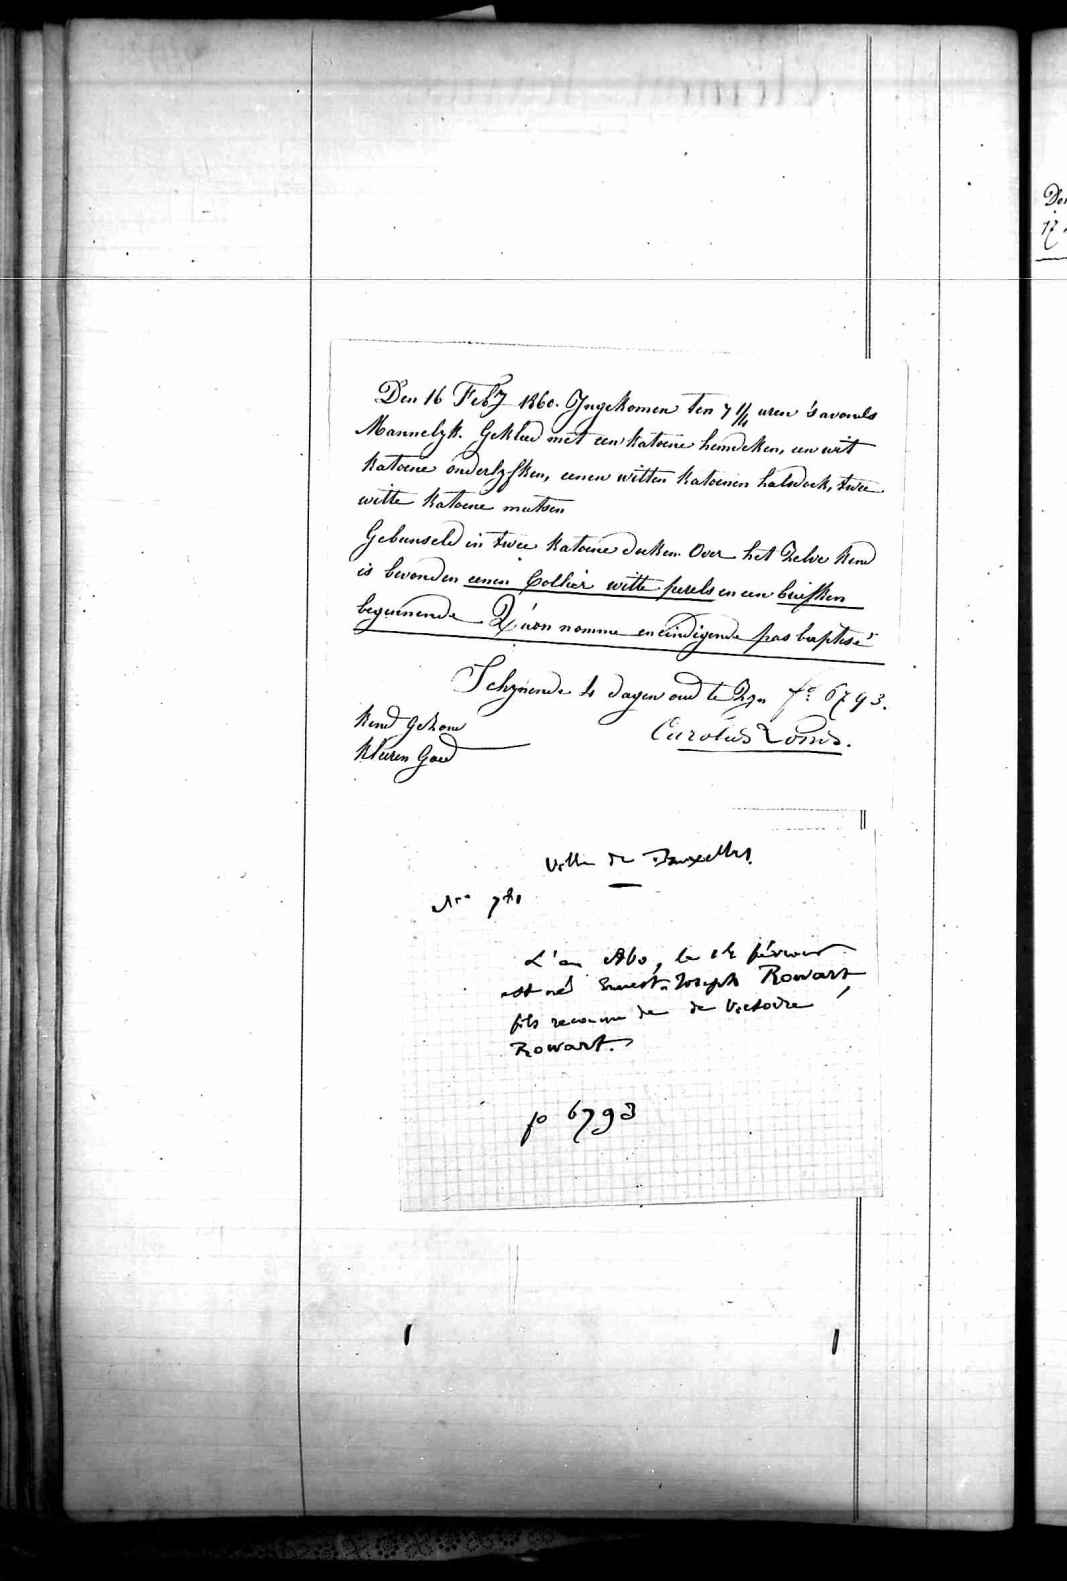 Den 16 Feb.y 1860. Ingekomen ten 7 1/4 uren 's avonds
Mannelyk. Gekleed met een katoene hemdeken, een wit
katoene onderlyfken, eenen witten katoenen halsdoek, twee
witte katoene mutsen
Gebunseld in twee katoene doeken. Over het zelve kend
is bevonden eenen Collier witte perels en een briefken
beginnende Qu'on nomme en eindigende pas baptisé
Schynende 4 dagen oud te zyn fo 6793.
Kend Gezond
Carolus
Kleeren Goed
Ville de Bruxelles.
No 781
L'an 1860, le 14 février
est né Ernest-Joseph Rowart,
fils reconnu de de Victoire
Rowart.
fo 6793
De
17